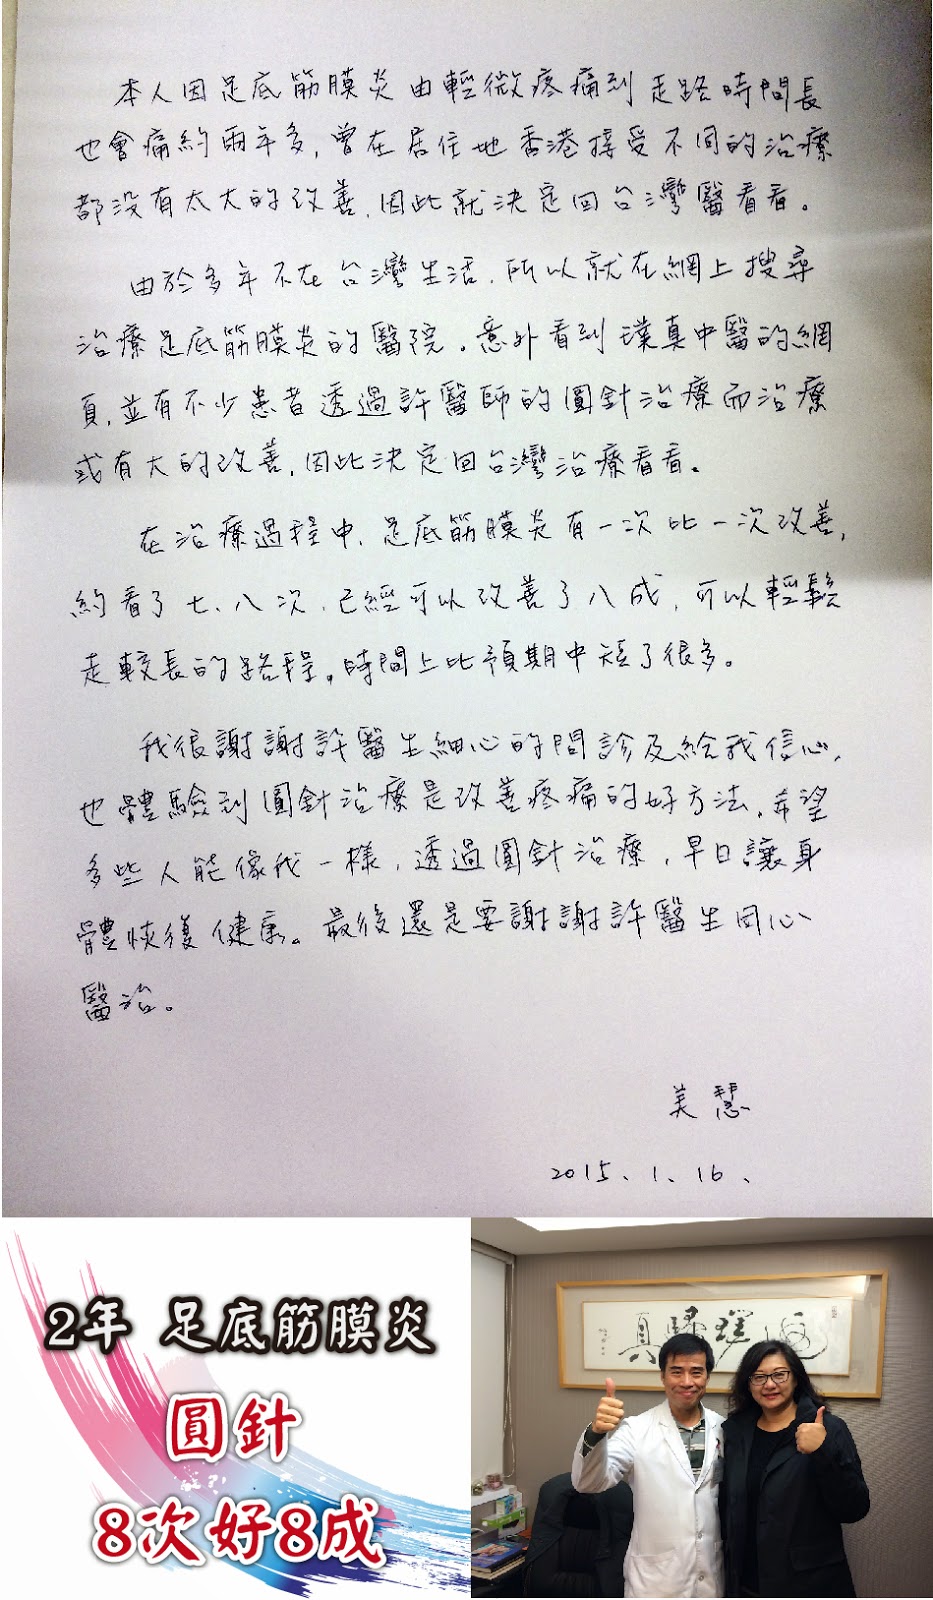 本人因足底筋膜炎由輕微疼痛到走路時間長
也會痛約兩年多，曾在居住地香港接受不同的治療
都没有太大的改善，因此就決定回台灣醫看看。
由於多年不在台灣生活，所以就在網上搜尋
治療足底筋膜炎的醫院。意外看到璞真中醫的網
頁，並有不少患者透過許醫師的圓針治療而治療
或有大的改善，因此決定回台灣治療看看。
在治療過程中，足底筋膜炎有一次比一次改善，
約看了七、八次，已經可以改善了八成，可以輕鬆
走較長的路程。時間上比預期中短了很多。
我很謝謝許醫生細心的問診及給我信心，
也體驗到圓針治療是改善疼痛的好方法，希望
多些人能像我一樣，透過圓針治療，早日讓身
體恢復健康。最後還是要謝謝許醫生用心
醫治。
美慧
2015、1、16、
2年 足底筋膜炎
圓針
8次好8成
真歸璞返